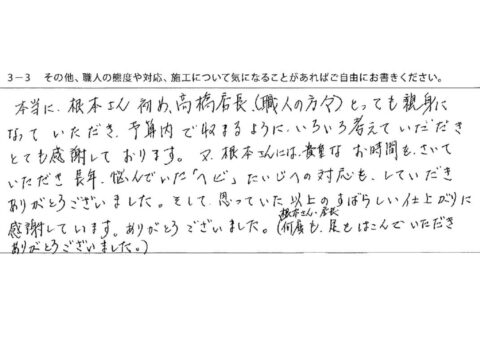 3-3 その他、職人の態度や対応、施工について気になることがあればご自由にお書きください。
本当に、根本さん初め、高橋店長、(職人の方々)とっても親身に
なっていただき、予算内で収まるように、いろいろ考えていただき
とても感謝しております。又、根本さんには、貴重なお時間を、さいて
いただき長年、悩んでいた「ヘビ」たいじへの対応も、していだき
ありがとうございました。そして、思っていた以上のすばらしい仕上がりに
感謝しています。ありがとうございました。(何度も、足もはこんでいただき
根本さん・店長
ありがとうございました。)